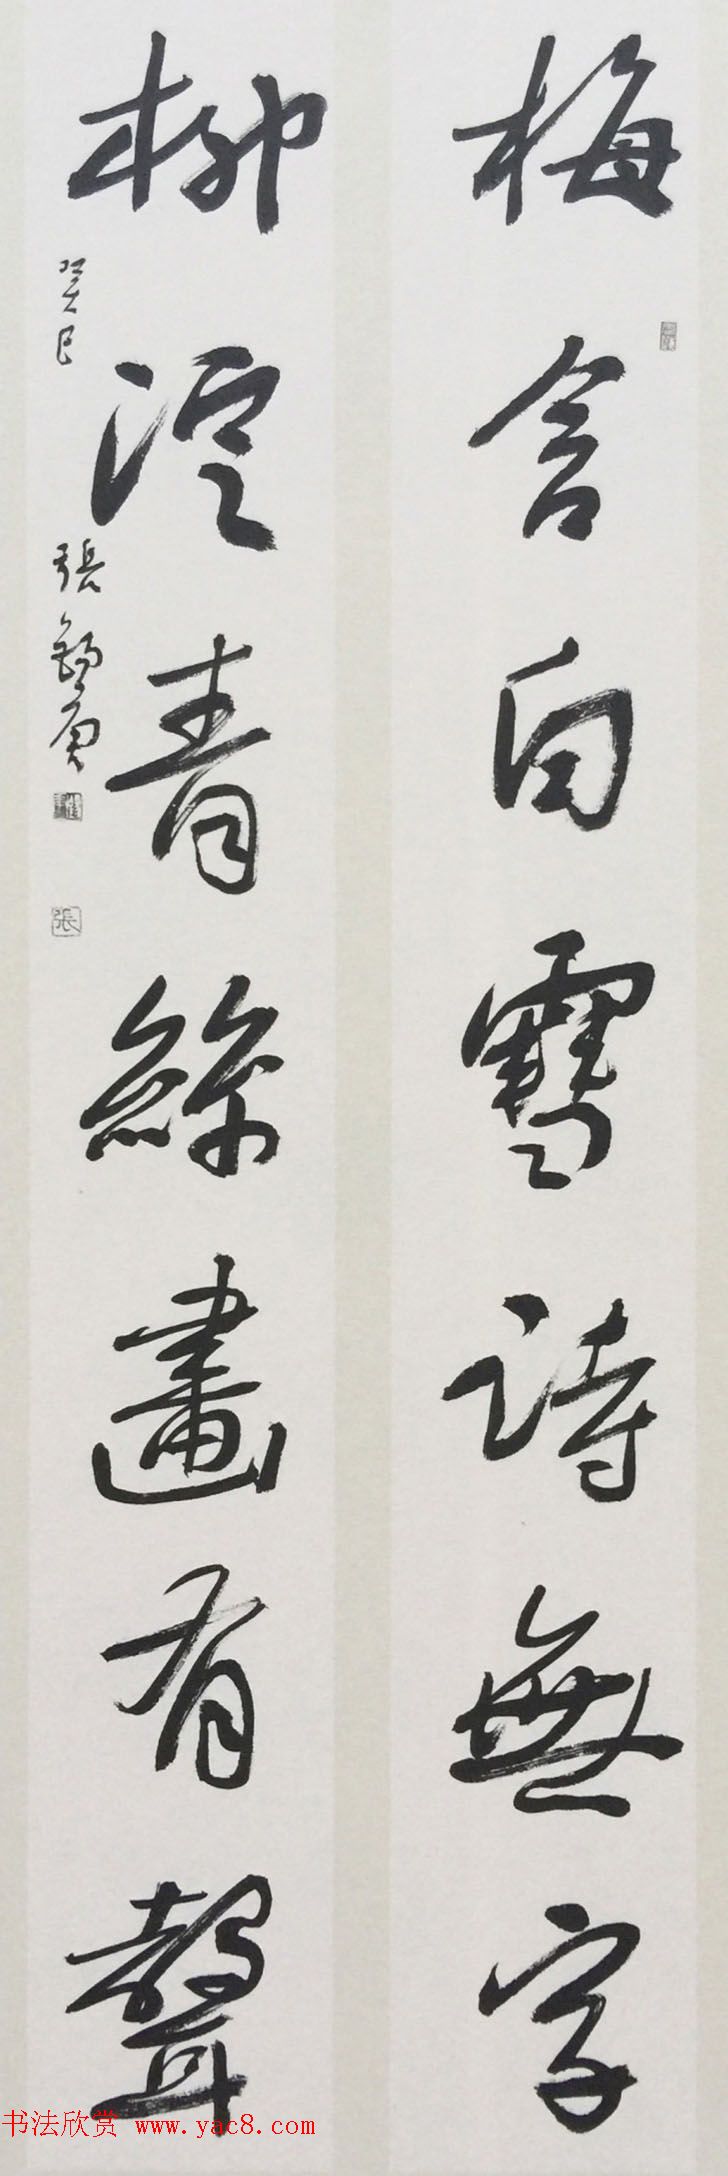 梅含白雪詩無字
柳淀青絲畫有聲
癸巳
張錫庚
張
书法欣赏 www.yac8.com